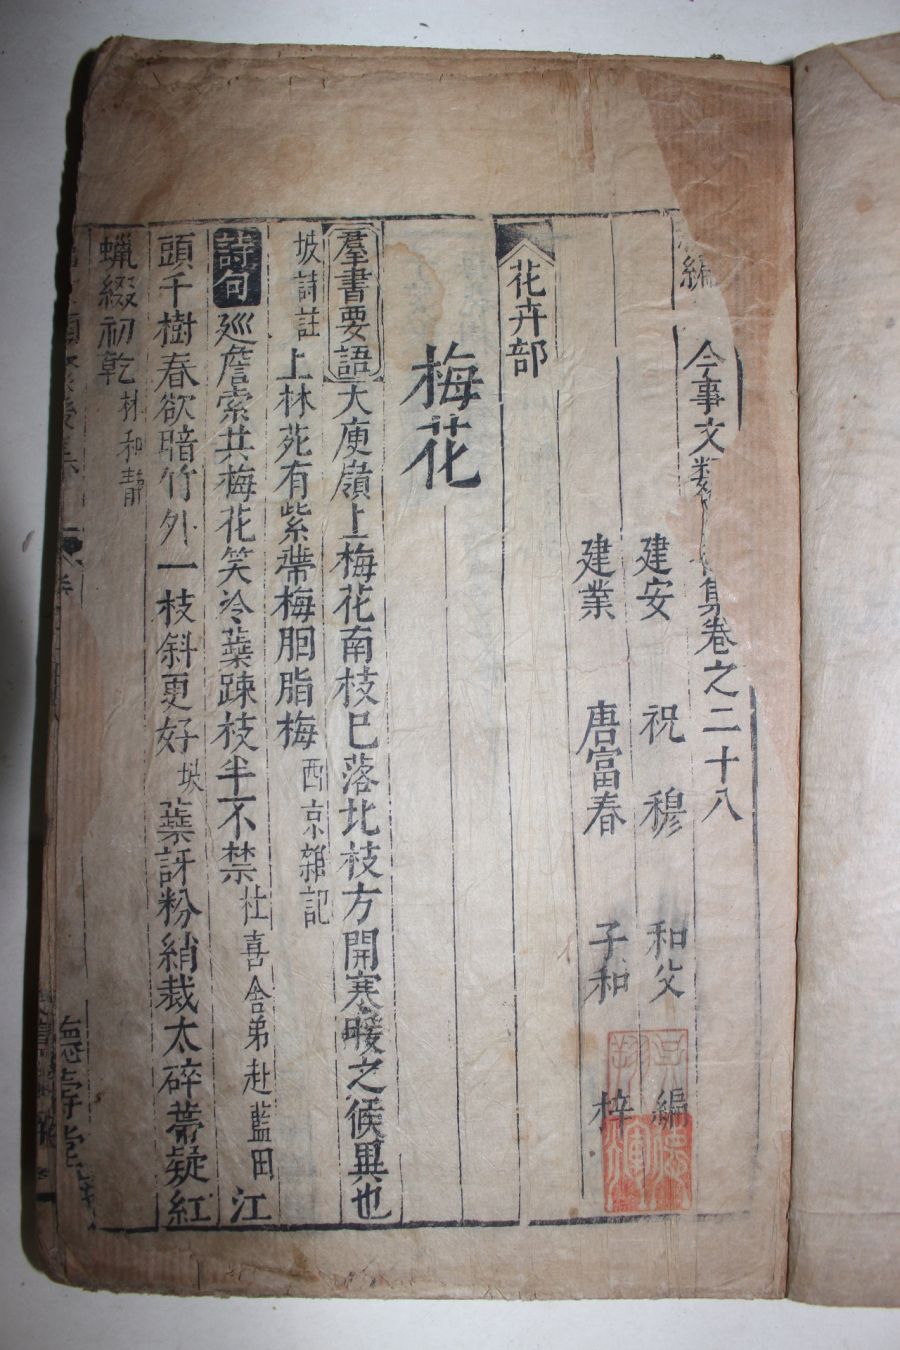 編
今事文類 集卷之二十八
建安 祝 穆 和父 編
建業 唐富春 子和 梓
花卉部
梅花
羣書要語 大庾嶺上梅花南枝已落北枝方開寒暖之候異也
坡詩註 上林苑有紫蔕梅胭脂梅 西京雜記
詩句 廵簷索共梅花笑冷蘂踈枝半不禁 杜喜舍弟赴藍田 江
頭千樹春欲暗竹外一枝斜更好 坡 蘂訝粉綃裁太碎蔕疑紅
蠟綴初乾 林和靜
德壽堂